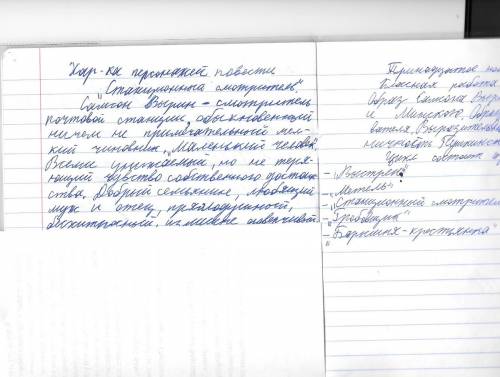 Хар-ка персонажей повести
"Станционный смотритель".
Самсон Вырин - смотритель
почтовой станции, обыкновенный
ничем не примечательный мел-
кий чиновник, "Маленький человек".
Всеми унижаемый, но не теря-
ющий чувство собственного достоин-
ства. Добрый семьянин, любящий
муж и отец, прямодушный,
бесхитростный, излишне доверчивый.
Классная работа
Образ Самсона Выри
и Минского. Образ
Цикл состоит из
- "Выстрел"
- "Метель"
- "Станционный смотритель
- "Гробовщик"
- "Барышня-крестьянка"